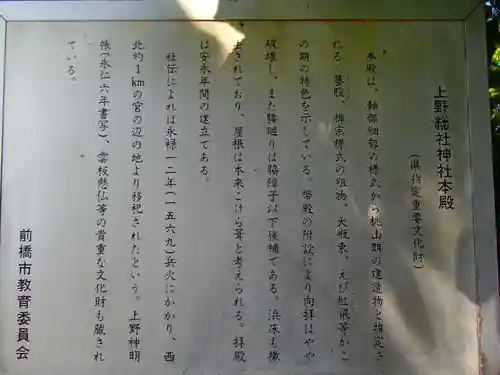 上野総社神社本殿
（県指定重要文化財）
本殿は、軸部細部の様式から桃山期の建造物と推定さ
れる。蟇股、禅宗様式の組物、大瓶束、えび虹梁等がこ
の期の特色を示している。幣殿の附設により向拝はやや
破壊し、また腰廻りは脇障子以下後補である。浜床も撤
去されており、屋根は本来こけら葺と考えられる。拝殿
は安永年間の建立である。
社伝によれば永禄一二年（一五六九）兵火にかかり、西
北約１kmの宮の辺の地より移祀されたという。上野神明
帳（永仁六年書写）、雲板懸仏等の貴重な文化財も蔵され
ている。
前橋市教育委員会